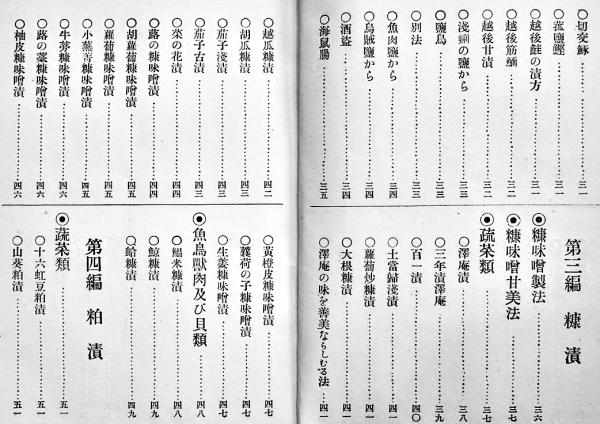 ○切交鮴……三一
○菰鹽鰹……三一
○越後鮭の漬方……三一
○越後筋鰤……三二
○越後甘漬……三二
○淺蜊の鹽から……三三
○鹽鳥……三三
○別法……三三
○魚肉鹽から……三四
○烏賊鹽から……三四
○酒盜……三四
○海鼠腸……三五
第三編 糠漬
◉糠味噌製法……三六
◉糠味噌甘美法……三七
◉蔬菜類……三七
○澤庵漬……三八
○三年漬澤庵……三九
○百一漬……四〇
○土當歸淺漬……四一
○蘿蔔炒糠漬……四一
○大根糠漬……四一
○澤庵の味を善美ならしむる法……四一
○越瓜糠漬……四二
○胡瓜糠漬……四三
○茄子淺漬……四三
○茄子古漬……四三
○菜の花漬……四四
○蕗の糠味噌漬……四四
○胡蘿蔔糠味噌漬……四五
○蘿蔔糠味噌漬……四五
○小蕪菁糠味噌漬……四五
○牛蒡糠味噌漬……四六
○蕗の薹糠味噌漬……四六
○柚皮糠味噌漬……四六
○黃橙皮糠味噌漬……四七
○蘘荷の子糠味噌漬……四七
○生薑糠味噌漬……四七
◉魚鳥獸肉及び貝類……四八
○鰮米糠漬……四八
○鯨糠漬……四九
○蛤糠漬……四九
第四編 粕漬
◉蔬菜類……五一
○十六豇豆粕漬……五一
○山葵粕漬……五一